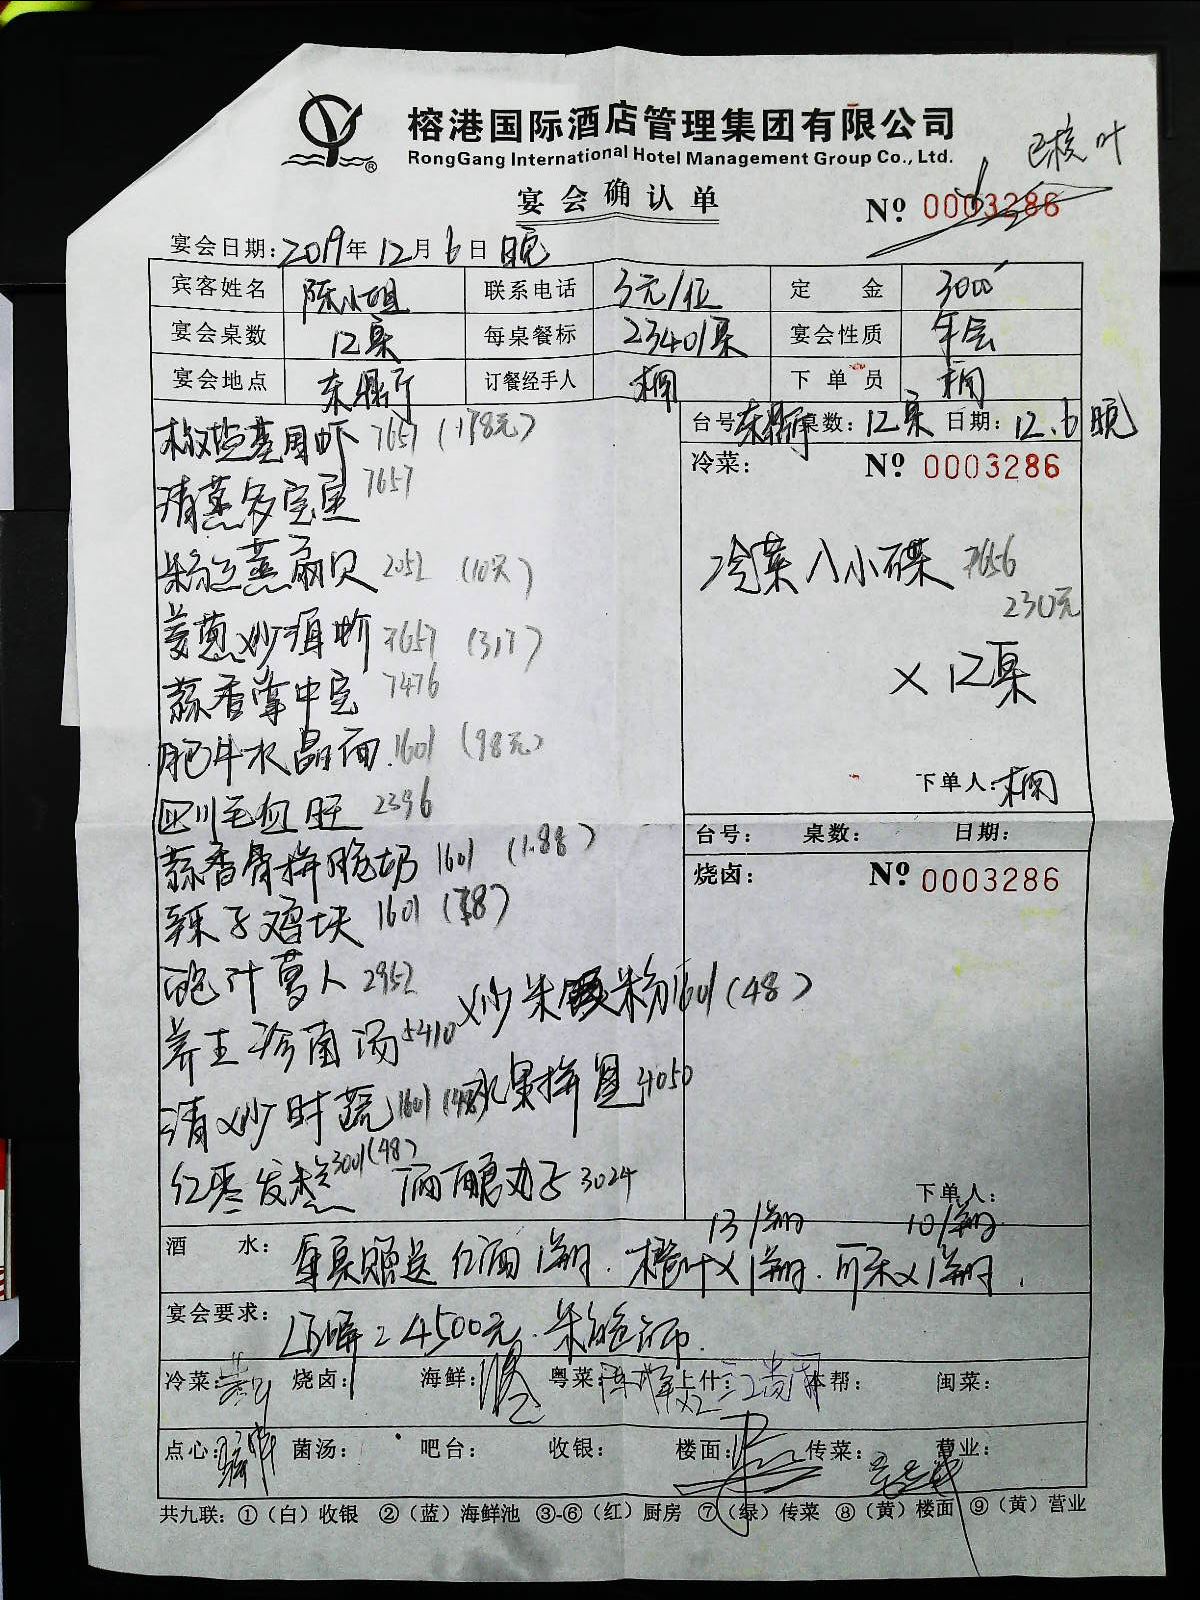 榕港国际酒店管理集团有限公司
RongGang International Hotel Management Group Co., Ltd.
已核 叶
宴会确认单
№ 0003286
宴会日期: 2019年12月6日 晚
宾客姓名 陈小姐 联系电话 3元/位 定金 3000
宴会桌数 12桌 每桌餐标 2340/桌 宴会性质 年会
宴会地点 东鼎厅 订餐经手人 楠 下单员 楠
台号: 东鼎厅 桌数: 12桌 日期: 12.6晚
冷菜: № 0003286
冷菜八小碟 7656
230元
× 12桌
下单人: 楠
椒盐基围虾 7657 (178元)
清蒸多宝鱼 7657
粉丝蒸扇贝 2052 (10元)
姜葱炒 7657 (317)
蒜香掌中宝 7476
肥牛水晶面 1601 (98元)
四川毛血旺 2396
蒜香骨拼脆奶 1601 (1.88)
辣子鸡块 1601
鲍汁 2952
炒米粉 1601 (48)
养生珍菌汤 5410
清炒时蔬 1601
水果拼盘 4050
红枣发糕 3001 (48)
酒酿丸子 3024
台号: 桌数: 日期:
烧卤: № 0003286
下单人:
13/箱 10/箱
酒水: 每桌赠送红酒1箱. 橙汁×1箱. 可乐×1箱.
宴会要求: LED屏=4500元.
冷菜: 烧卤: 海鲜: 粤菜: 上什: 本帮: 闽菜:
点心: 菌汤: 吧台: 收银: 楼面: 传菜: 营业:
共九联: ①(白)收银 ②(蓝)海鲜池 ③-⑥(红)厨房 ⑦(绿)传菜 ⑧(黄)楼面 ⑨(黄)营业